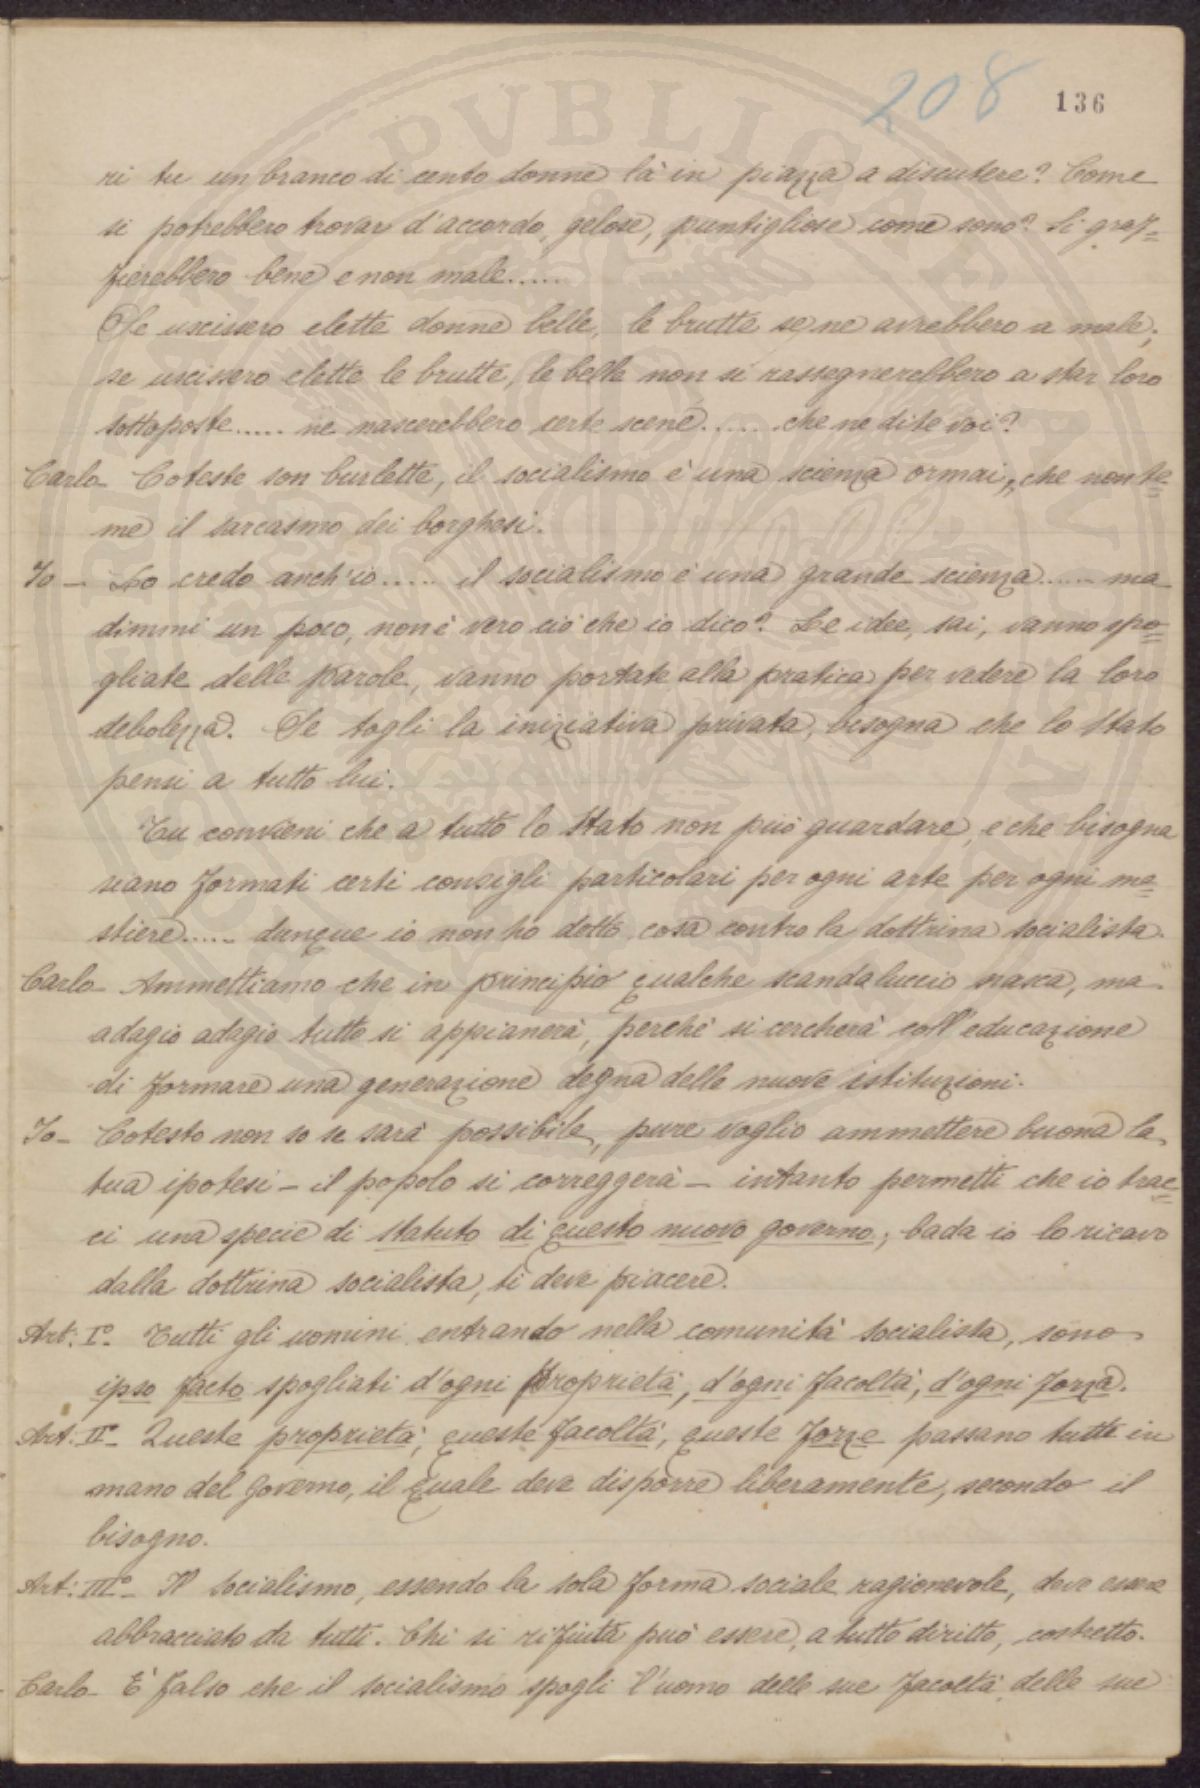 208 136
ri tu un branco di cento donne là in piazza a discutere? Come
si potrebbero trovar d'accordo, gelose, puntigliose come sono? Si graf=
fierebbero bene e non male......
Se uscissero elette donne belle, le brutte se ne avrebbero a male;
se uscissero elette le brutte, le belle non si rassegnerebbero a star loro
sottoposte..... ne nascerebbero certe scene...... che ne dite voi?
Carlo - Coteste son burlette, il socialismo è una scienza ormai, che non te=
me il sarcasmo dei borghesi.
Io - Lo credo anch'io..... il socialismo è una grande scienza...... ma
dimmi un poco, non è vero ciò che io dico? Le idee, sai, vanno spo=
gliate delle parole, vanno portate alla pratica per vedere la loro
debolezza. Se togli la iniziativa privata, bisogna che lo Stato
pensi a tutto lui.
Tu convieni che a tutto lo Stato non può guardare, e che bisogna
siano formati certi consigli particolari per ogni arte per ogni me=
stiere..... dunque io non ho detto cosa contro la dottrina socialista.
Carlo - Ammettiamo che in principio qualche scandaluccio nasca, ma
adagio adagio tutto si appianerà, perchè si cercherà coll'educazione
di formare una generazione degna delle nuove istituzioni.
Io - Cotesto non so se sarà possibile, pure voglio ammettere buona la
tua ipotesi - il popolo si correggerà - intanto permetti che io trac=
ci una specie di statuto di questo nuovo governo; bada io lo ricavo
dalla dottrina socialista, ti deve piacere.
Art: I° - Tutti gli uomini entrando nella comunità socialista, sono
ipso facto spogliati d'ogni proprietà, d'ogni facoltà, d'ogni forza.
Art: II° - Queste proprietà, queste facoltà, queste forze passano tutte in
mano del Governo, il quale deve disporre liberamente, secondo il
bisogno.
Art: III° - Il socialismo, essendo la sola forma sociale ragionevole, deve essere
abbracciato da tutti. Chi si rifiuta può essere, a tutto diritto, costretto.
Carlo - È falso che il socialismo spogli l'uomo delle sue facoltà, delle sue